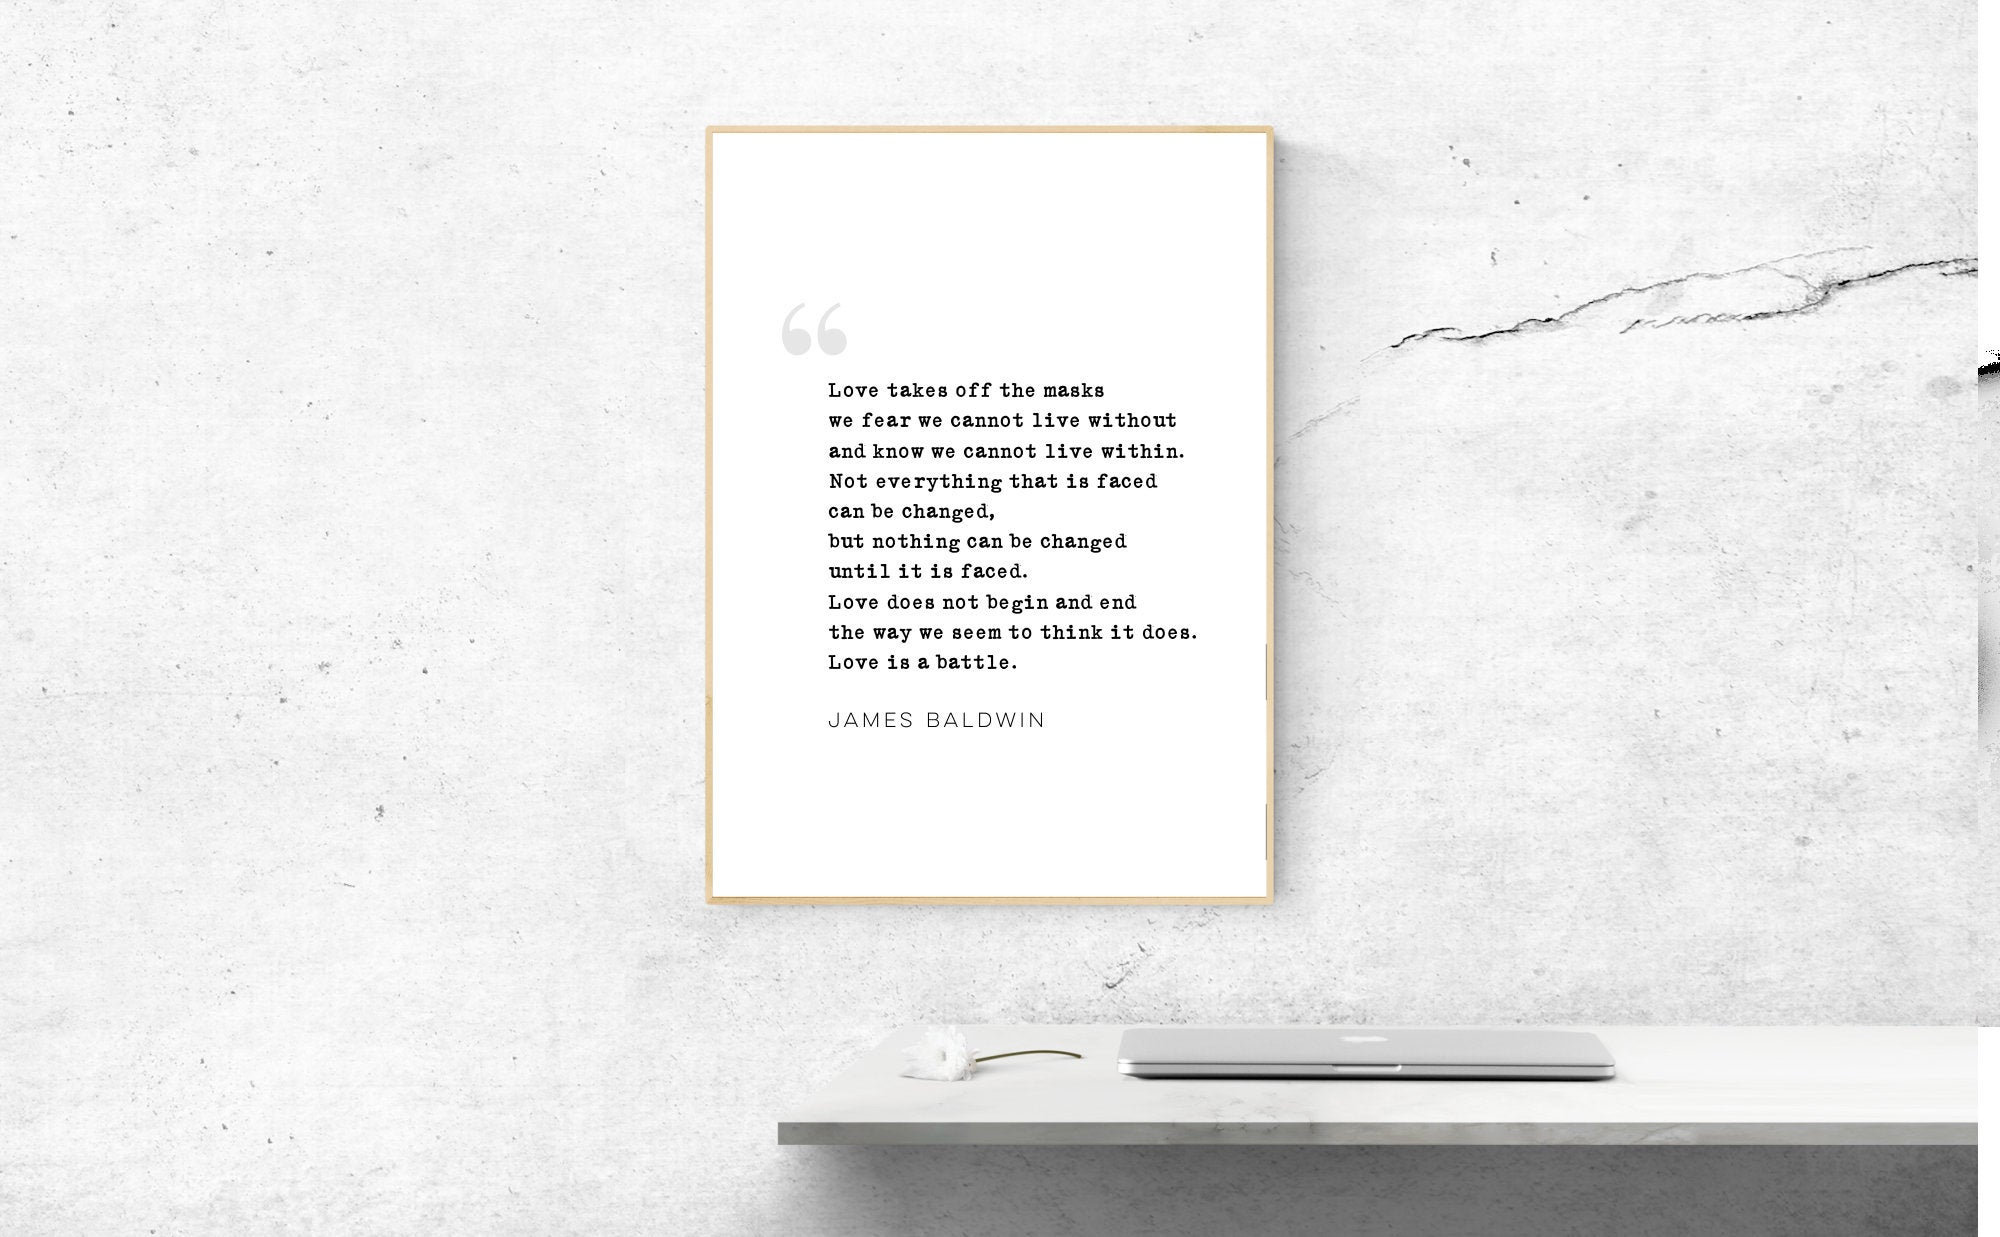 “
Love takes off the masks
we fear we cannot live without
and know we cannot live within.
Not everything that is faced
can be changed,
but nothing can be changed
until it is faced.
Love does not begin and end
the way we seem to think it does.
Love is a battle.
JAMES BALDWIN